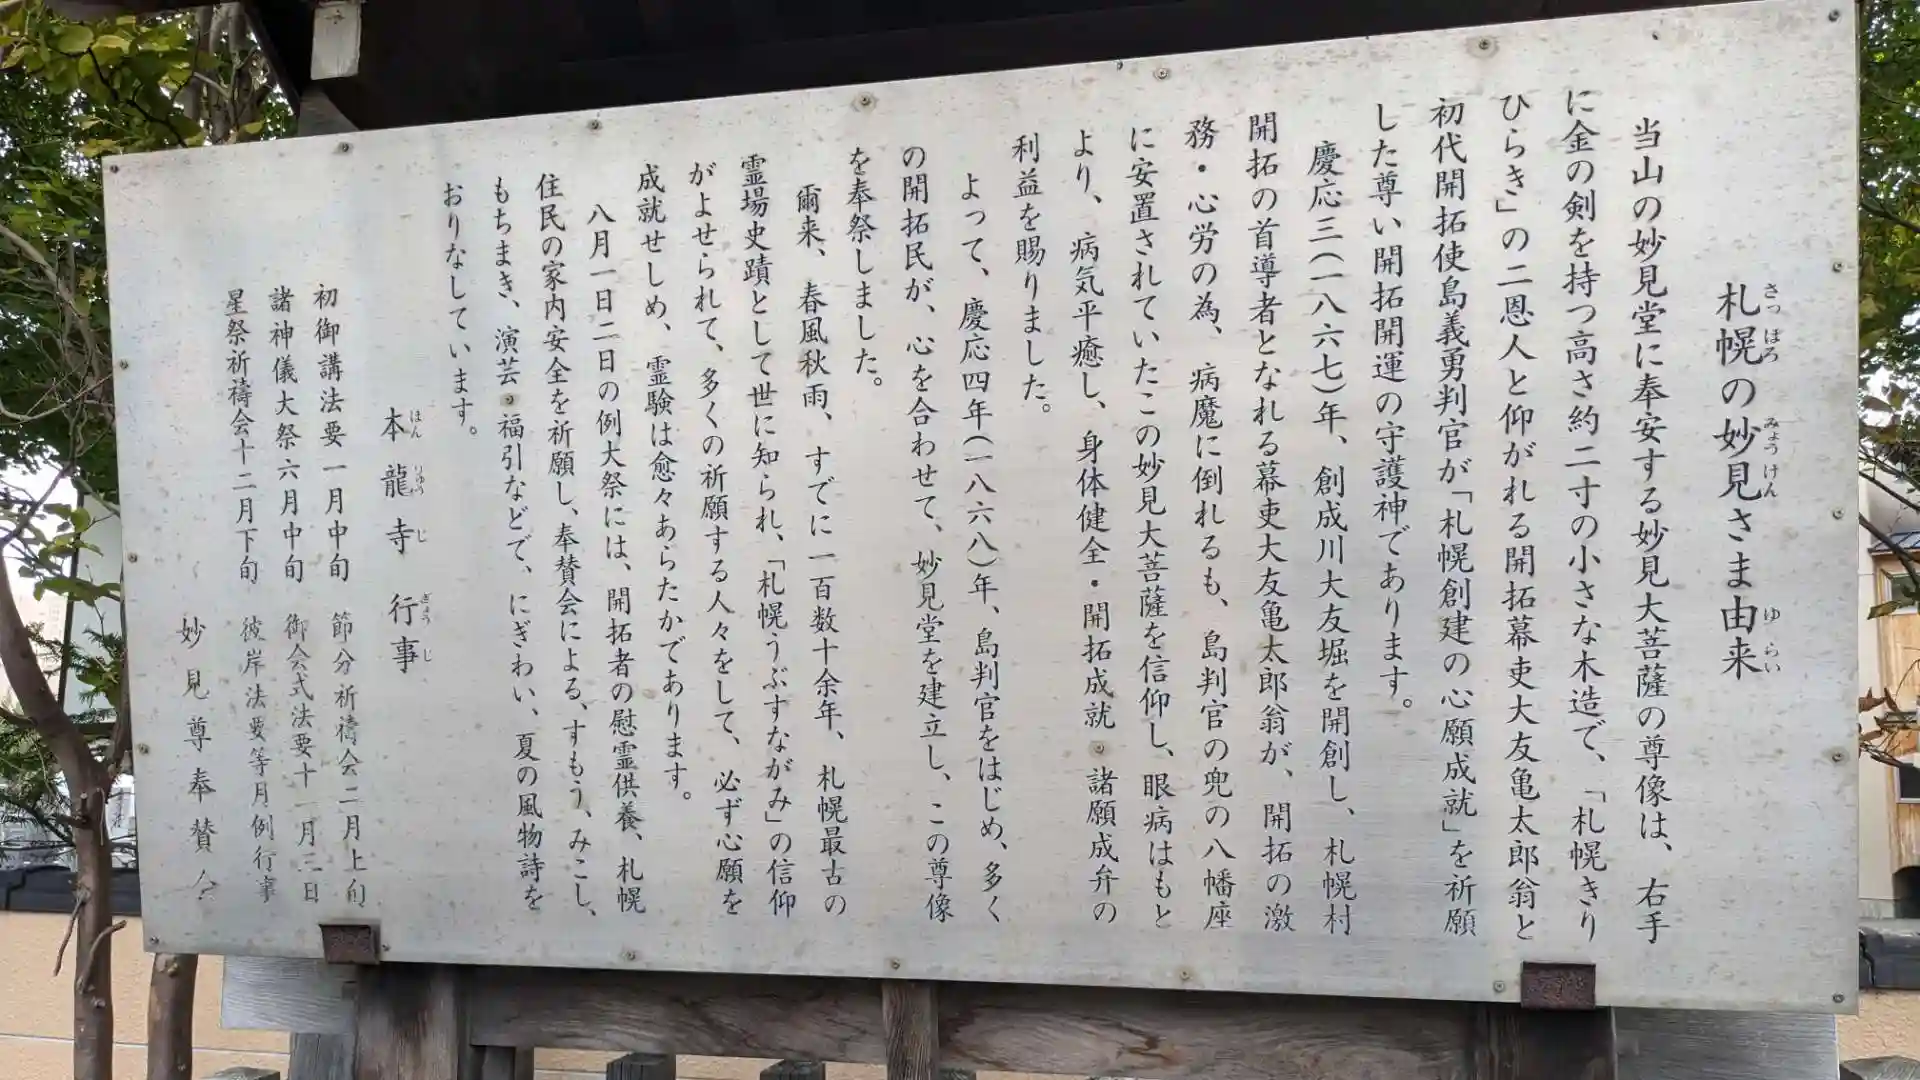 札幌の妙見さま由来
さっぽろ　みょうけん　ゆらい
当山の妙見堂に奉安する妙見大菩薩の尊像は、右手
に金の剣を持つ高さ約二寸の小さな木造で、「札幌きり
ひらき」の二恩人と仰がれる開拓幕吏大友亀太郎翁と
初代開拓使島義勇判官が「札幌創建の心願成就」を祈願
した尊い開拓開運の守護神であります。
慶応三(一八六七)年、創成川大友堀を開創し、札幌村
開拓の首導者となれる幕吏大友亀太郎翁が、開拓の激
務・心労の為、病魔に倒れるも、島判官の兜の八幡座
に安置されていたこの妙見大菩薩を信仰し、眼病はもと
より、病気平癒し、身体健全・開拓成就・諸願成弁の
利益を賜りました。
よって、慶応四年(一八六八)年、島判官をはじめ、多く
の開拓民が、心を合わせて、妙見堂を建立し、この尊像
を奉祭しました。
爾来、春風秋雨、すでに一百数十余年、札幌最古の
霊場史蹟として世に知られ、「札幌うぶすながみ」の信仰
がよせられて、多くの祈願する人々をして、必ず心願を
成就せしめ、霊験は愈々あらたかであります。
八月一日二日の例大祭には、開拓者の慰霊供養、札幌
住民の家内安全を祈願し、奉賛会による、すもう、みこし、
もちまき、演芸・福引などで、にぎわい、夏の風物詩を
おりなしています。
本龍寺行事
ほんりゅうじ　ぎょうじ
初御講法要一月中旬　節分祈禱会二月上旬
諸神儀大祭六月中旬　御会式法要十一月三日
星祭祈禱会十二月下旬　彼岸法要等月例行事
妙見尊奉賛会